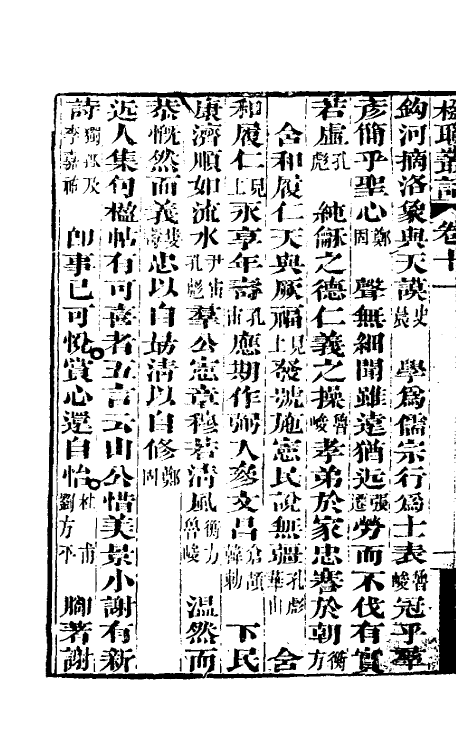 楹聯叢話 卷十一
鈎河摘洛象與天談史晨 學為儒宗行為士表魯峻冠乎羣
彥簡乎聖心鄭固 聲無細聞雖遠猶近張遷勞而不伐有實
若虛孔彪 純龢之德仁義之操魯峻孝弟於家忠謇於朝衡方
含和履仁天與厥福見上發號施憲民說無疆孔彪華山 含
和履仁見上永享年壽孔宙應期作弼人參文昌倉頡韓勑 下民
康濟順如流水尹宙孔彪羣公憲章穆若清風衡方魯峻 溫然而
恭慨然而義婁壽忠以自勗清以自修鄭固
近人集句楹帖有可喜者五言云山公惜美景小謝有新
詩獨孤及李嘉祐 即事已可悅賞心還自怡杜甫劉方平 腳著謝